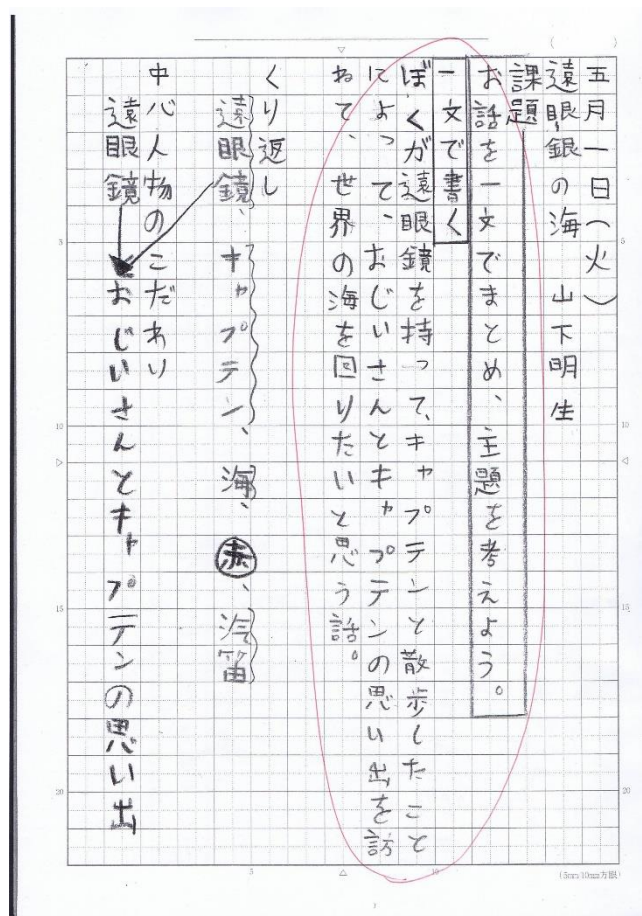 五月一日(火)
遠眼鏡の海 山下明生
課題
お話を一文でまとめ、主題を考えよう。
一文で書く
ぼくが遠眼鏡を持って、キャプテンと散歩したこと
によって、おじいさんとキャプテンの思い出を訪
ねて、世界の海を回りたいと思う話。
くり返し
遠眼鏡、キャプテン、海、赤、汽笛
中心人物のこだわり
遠眼鏡 おじいさんとキャプテンの思い出
5
10
15
20
5
10
15
20
5
10
(5mm10mm方眼)